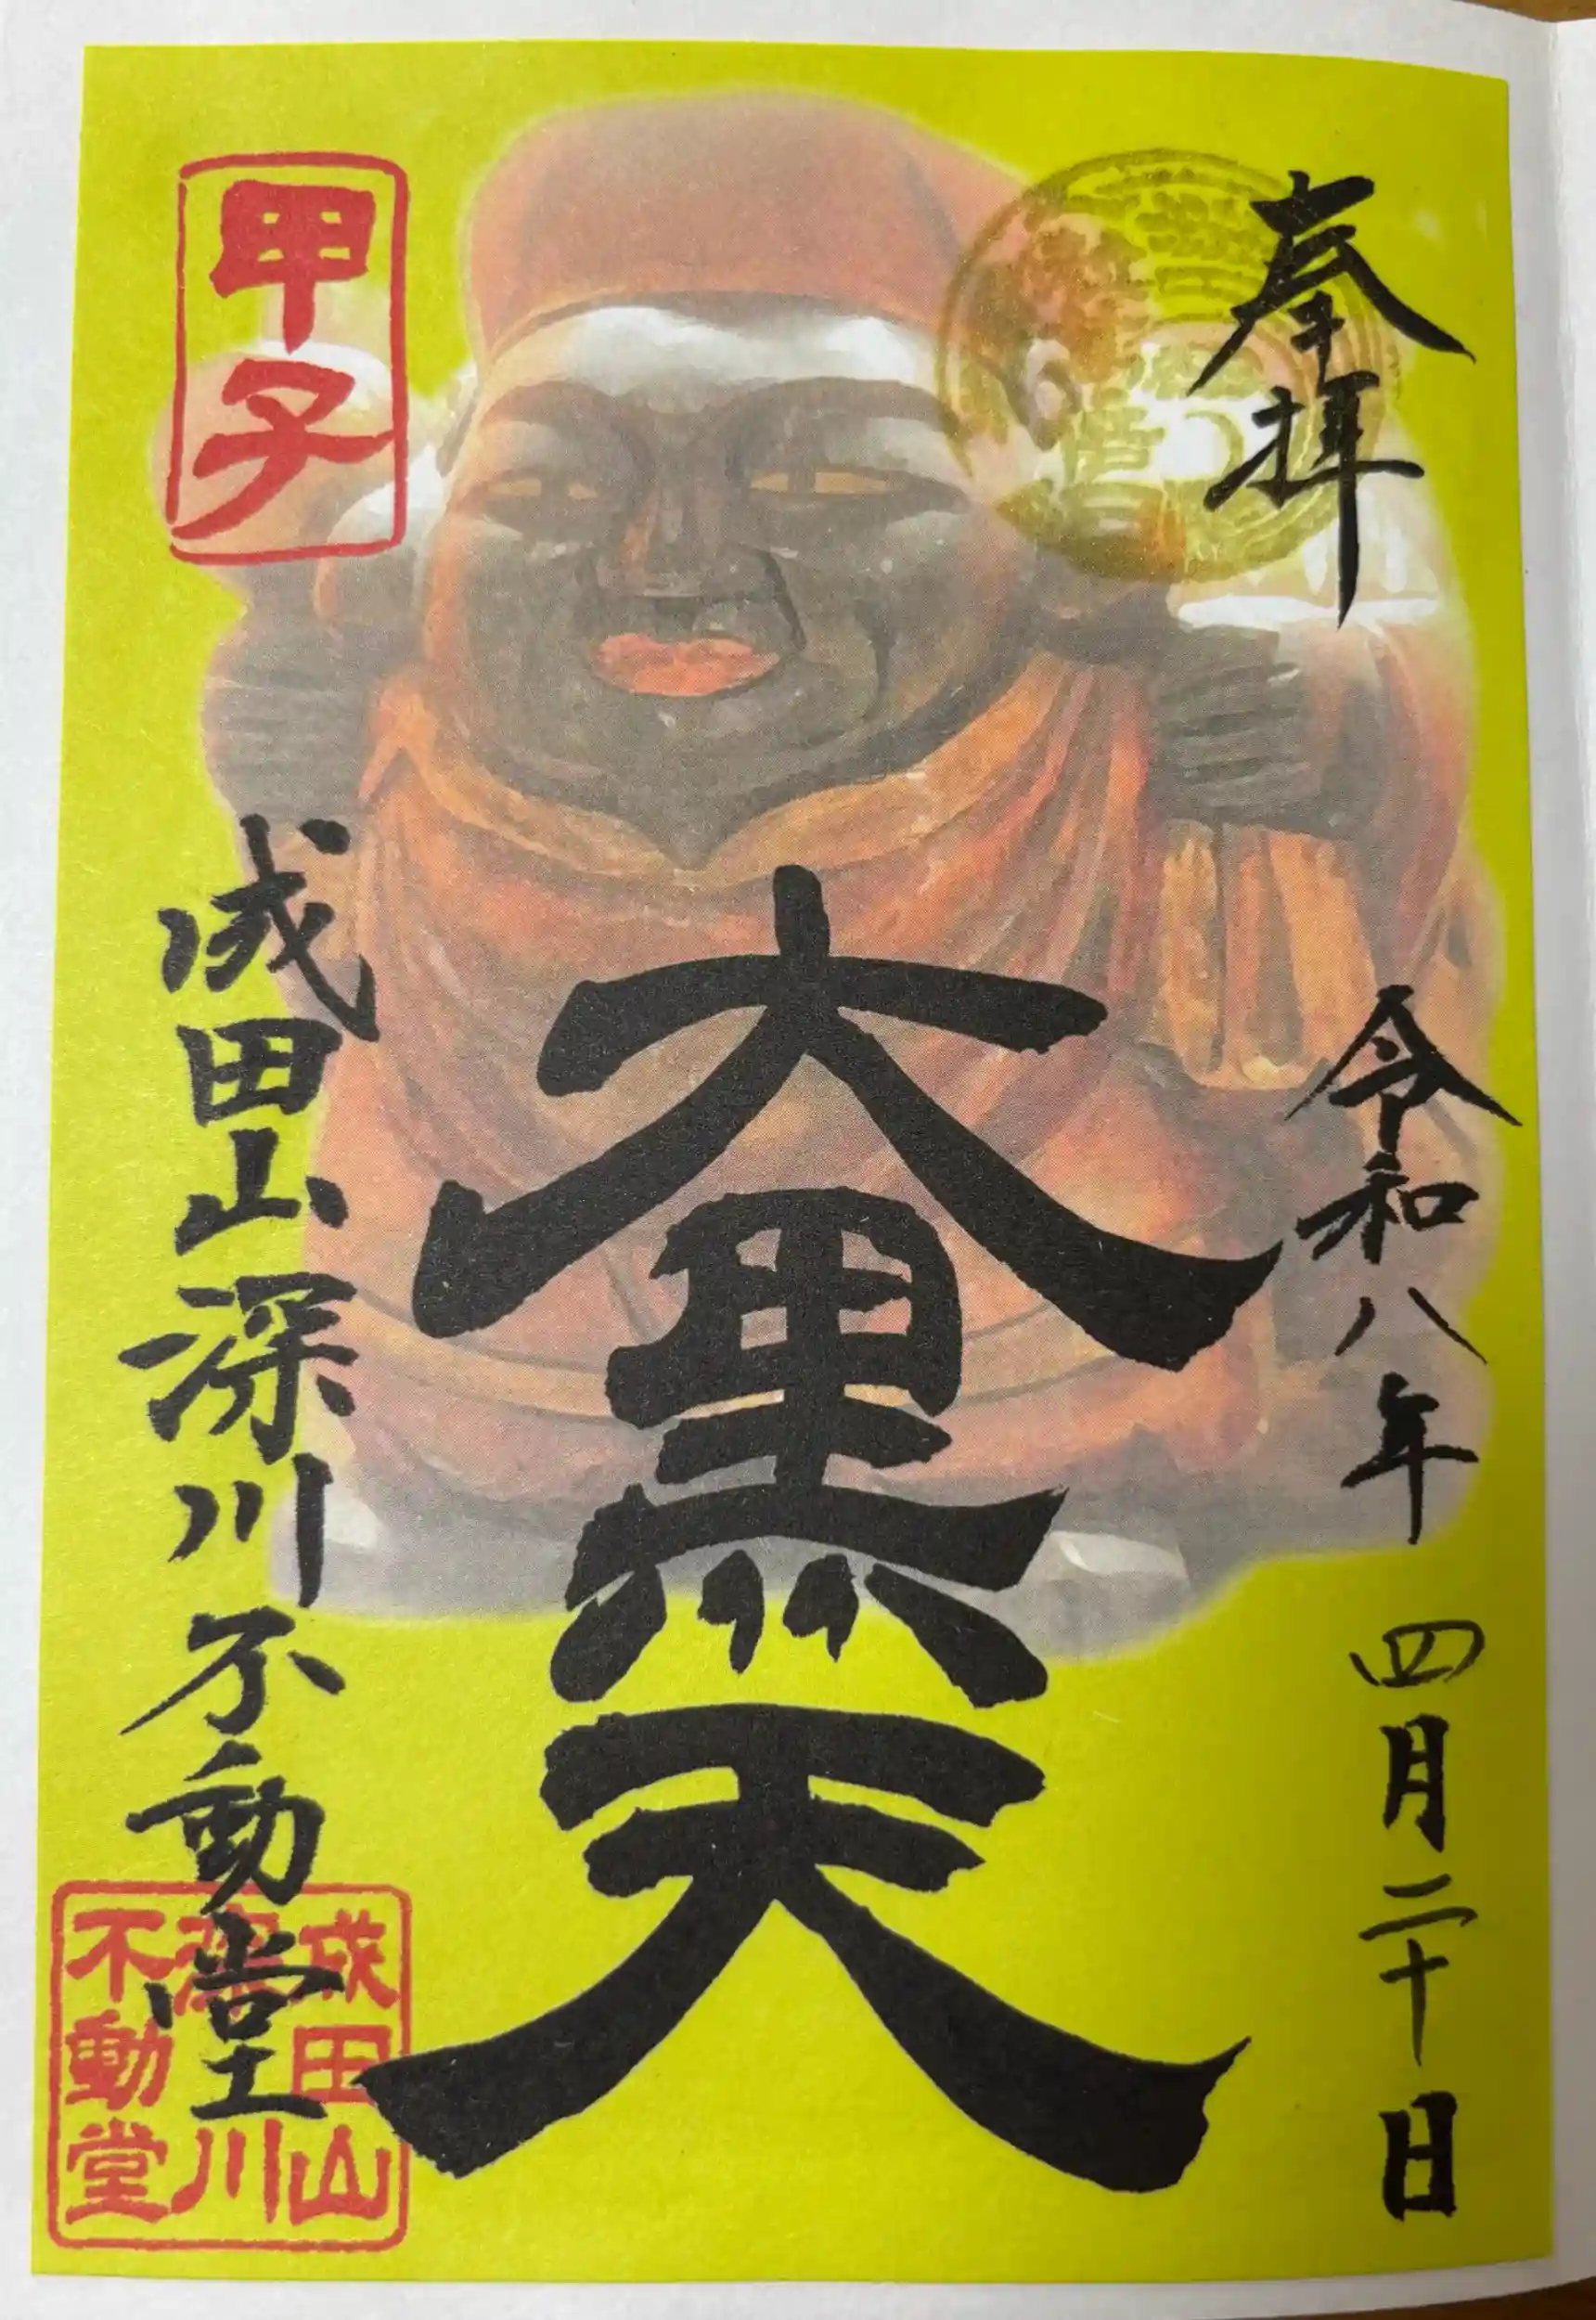 奉拝
令和八年 四月二十日
大黒天
甲子
成田山深川不動堂
成田山
深川
不動堂